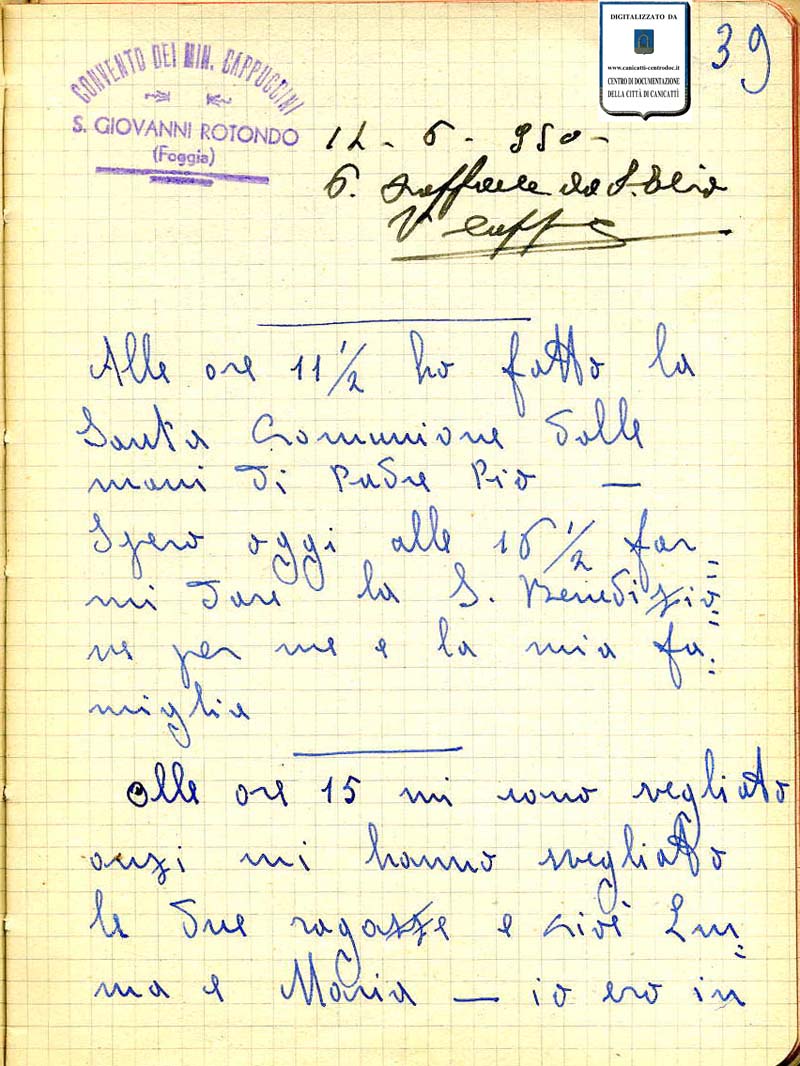 DIGITALIZZATO DA
www.canicatti-centrodoc.it
CENTRO DI DOCUMENTAZIONE
DELLA CITTÀ DI CANICATTÌ
39
CONVENTO DEI MIN. CAPPUCCINI
S. GIOVANNI ROTONDO
(Foggia)
12 - 6 - 950 -
P. Raffaele da S. Elia
Alle ore 11 1/2 ho fatto la
Santa Comunione dalle
mani di Padre Pio —
Spero oggi alle 16 1/2 far=
mi dare la S. Benedizio=
ne per me e la mia fa=
miglia
Alle ore 15 mi sono svegliato
anzi mi hanno svegliato
le due ragazze e cioè Em=
ma e Maria — io ero in